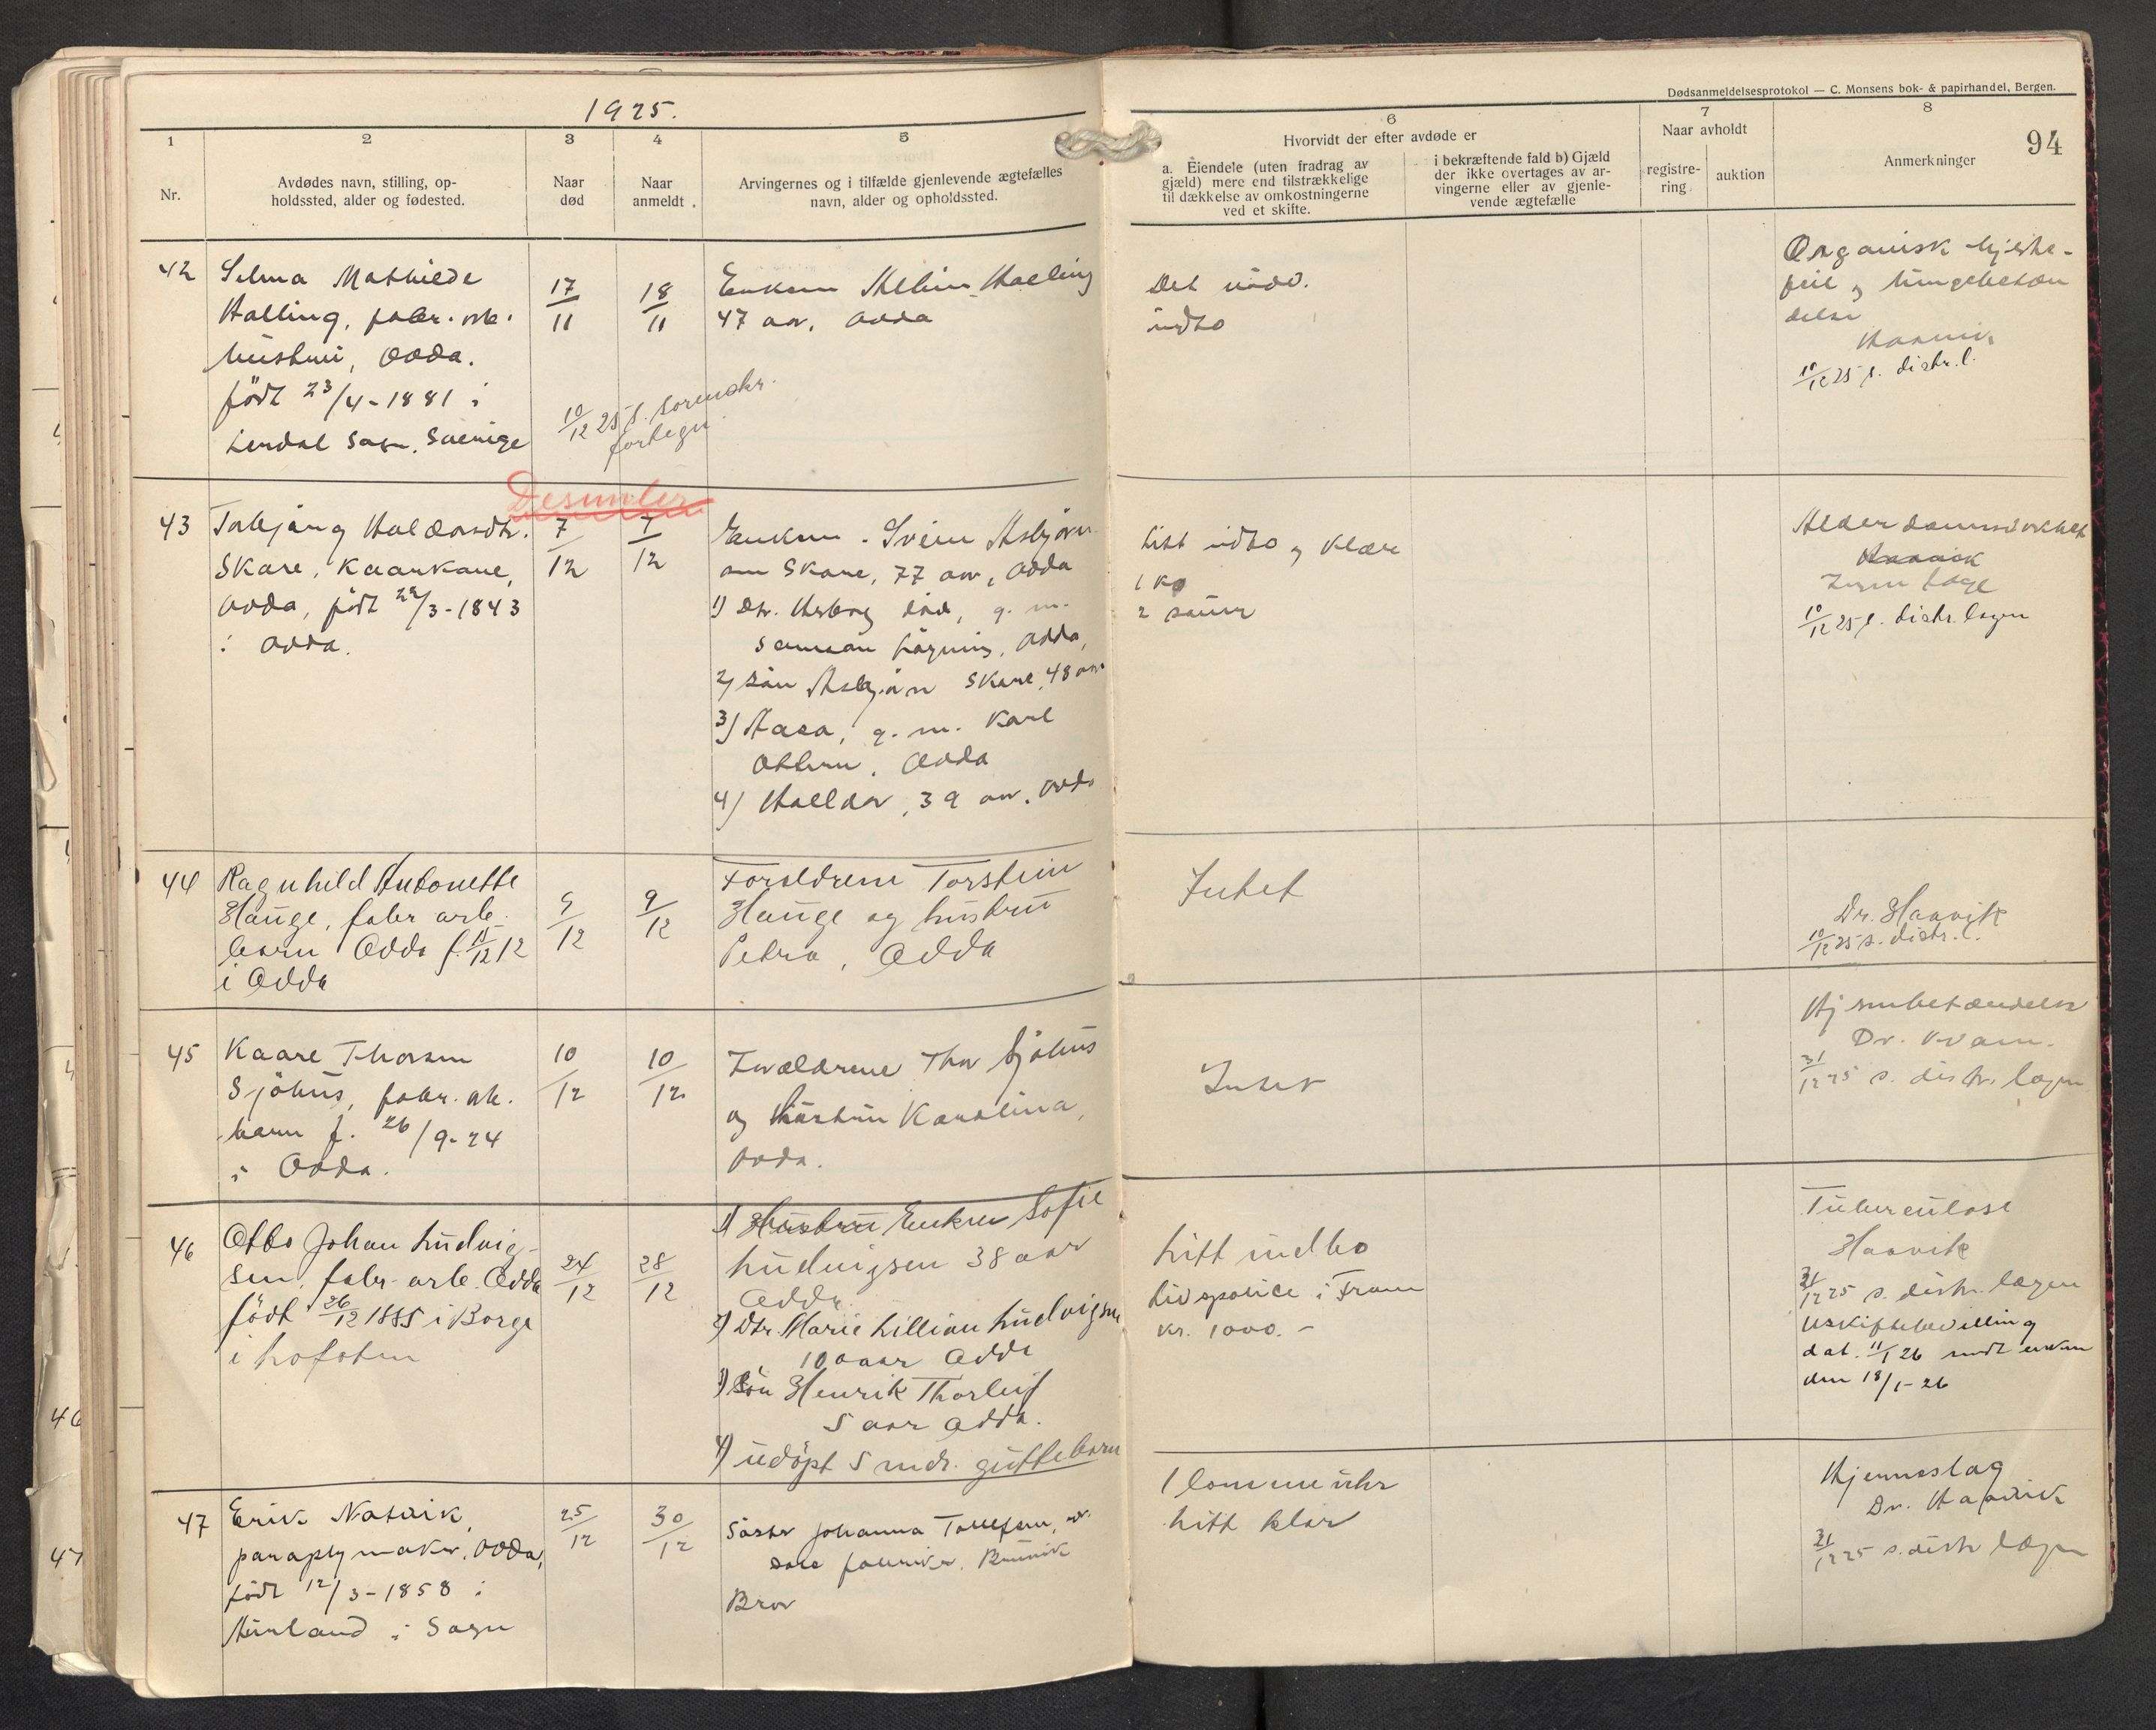 1925.
Dødsanmeldelsesprotokol — C. Monsens bok- & papirhandel, Bergen.
94
1
Nr.
2
Avdødes navn, stilling, op-
holdssted, alder og fødested.
3
Naar
død
4
Naar
anmeldt.
5
Arvingernes og i tilfælde gjenlevende ægtefælles
navn, alder og opholdssted.
6
Hvorvidt der efter avdøde er
a. Eiendele (uten fradrag av
gjæld) mere end tilstrækkelige
til dækkelse av omkostningerne
ved et skifte.
i bekræftende fald b) Gjæld
der ikke overtages av ar-
vingerne eller av gjenle-
vende ægtefælle
7
Naar avholdt
registre-
ring
auktion
8
Anmerkninger
42
Selma Mathilde
Halling, fabr. arb.
hustru, Odda.
født 23/4-1881 i
Lerdal Sogn, Sverige
17/11
18/11
10/12 25 s. sorenskr.
fortegn.
Enkem Halling
47 aar, Odda
Det nødv.
indbo
Organisk hjerte-
feil og lungebetæn
delse
10/12 25 s. distr.l.
Desember
43
Torbjørg Haldorsdtr.
Skare, kaarkone,
Odda, født 22/3-1843
i Odda.
7/12
7/12
Enkem. Svein Asbjørn
sen Skare, 77 aar, Odda
1) Dtr. død, g. m.
Samson Løyning, Odda,
2) Søn Asbjørn Skare, 48 aar
3) Aasa, g. m. Karl
Odda
4) Halldor, 39 aar, Odda
Litt indbo og klær
1 ko
2 sauer
Alderdomssvakhet
Haavik
Ingen læge
10/12 25 s. distr. lægen
44
Ragnhild Antonette
Hauge, fabr arb.
barn Odda f. 15/12 12
i Odda
9/12
9/12
Foreldrene Torstein
Hauge og hustru
Petra, Odda
Intet
Dr. Haavik
10/12 25 s. distr. l.
45
Kaare Thorsen
Sjøhus, fabr. arb.
barn f. 26/9-24
i Odda.
10/12
10/12
Forældrene Thor Sjøhus
og hustru Karolina,
Odda.
Intet
Hjernebetændelse
Dr. Kvam.
31/12 25 s. distr. lægen
46
Otto Johan Ludvig-
sen, fabr. arb. Odda
født 26/12 1885 i Borge
i Lofoten
24/12
28/12
1) Hustru Enken Sofie
Ludvigsen 38 aar
Odda
2) Dtr. Marie Lillian Ludvigsen
10 aar Odda
3) Søn Henrik Thorleif
5 aar Odda.
4) udøpt 5 mdr. guttebarn
Litt indbo
Livspolice i Fram
kr. 1000.-
Tuberculose
Haavik
31/12 25 s. distr. lægen
Uskiftebevilling
dat. 11/1 26 sendt enken
den 18/1-26
47
Erik Natvik,
paraplymaker, Odda,
født 12/3-1858 i
Aurland i Sogn
25/12
30/12
Søster Johanna Tollefsen,
Bror
1 lommeuhr
Litt klær
Hjerneslag
Dr. Haavik
31/12 25 s. distr lægen